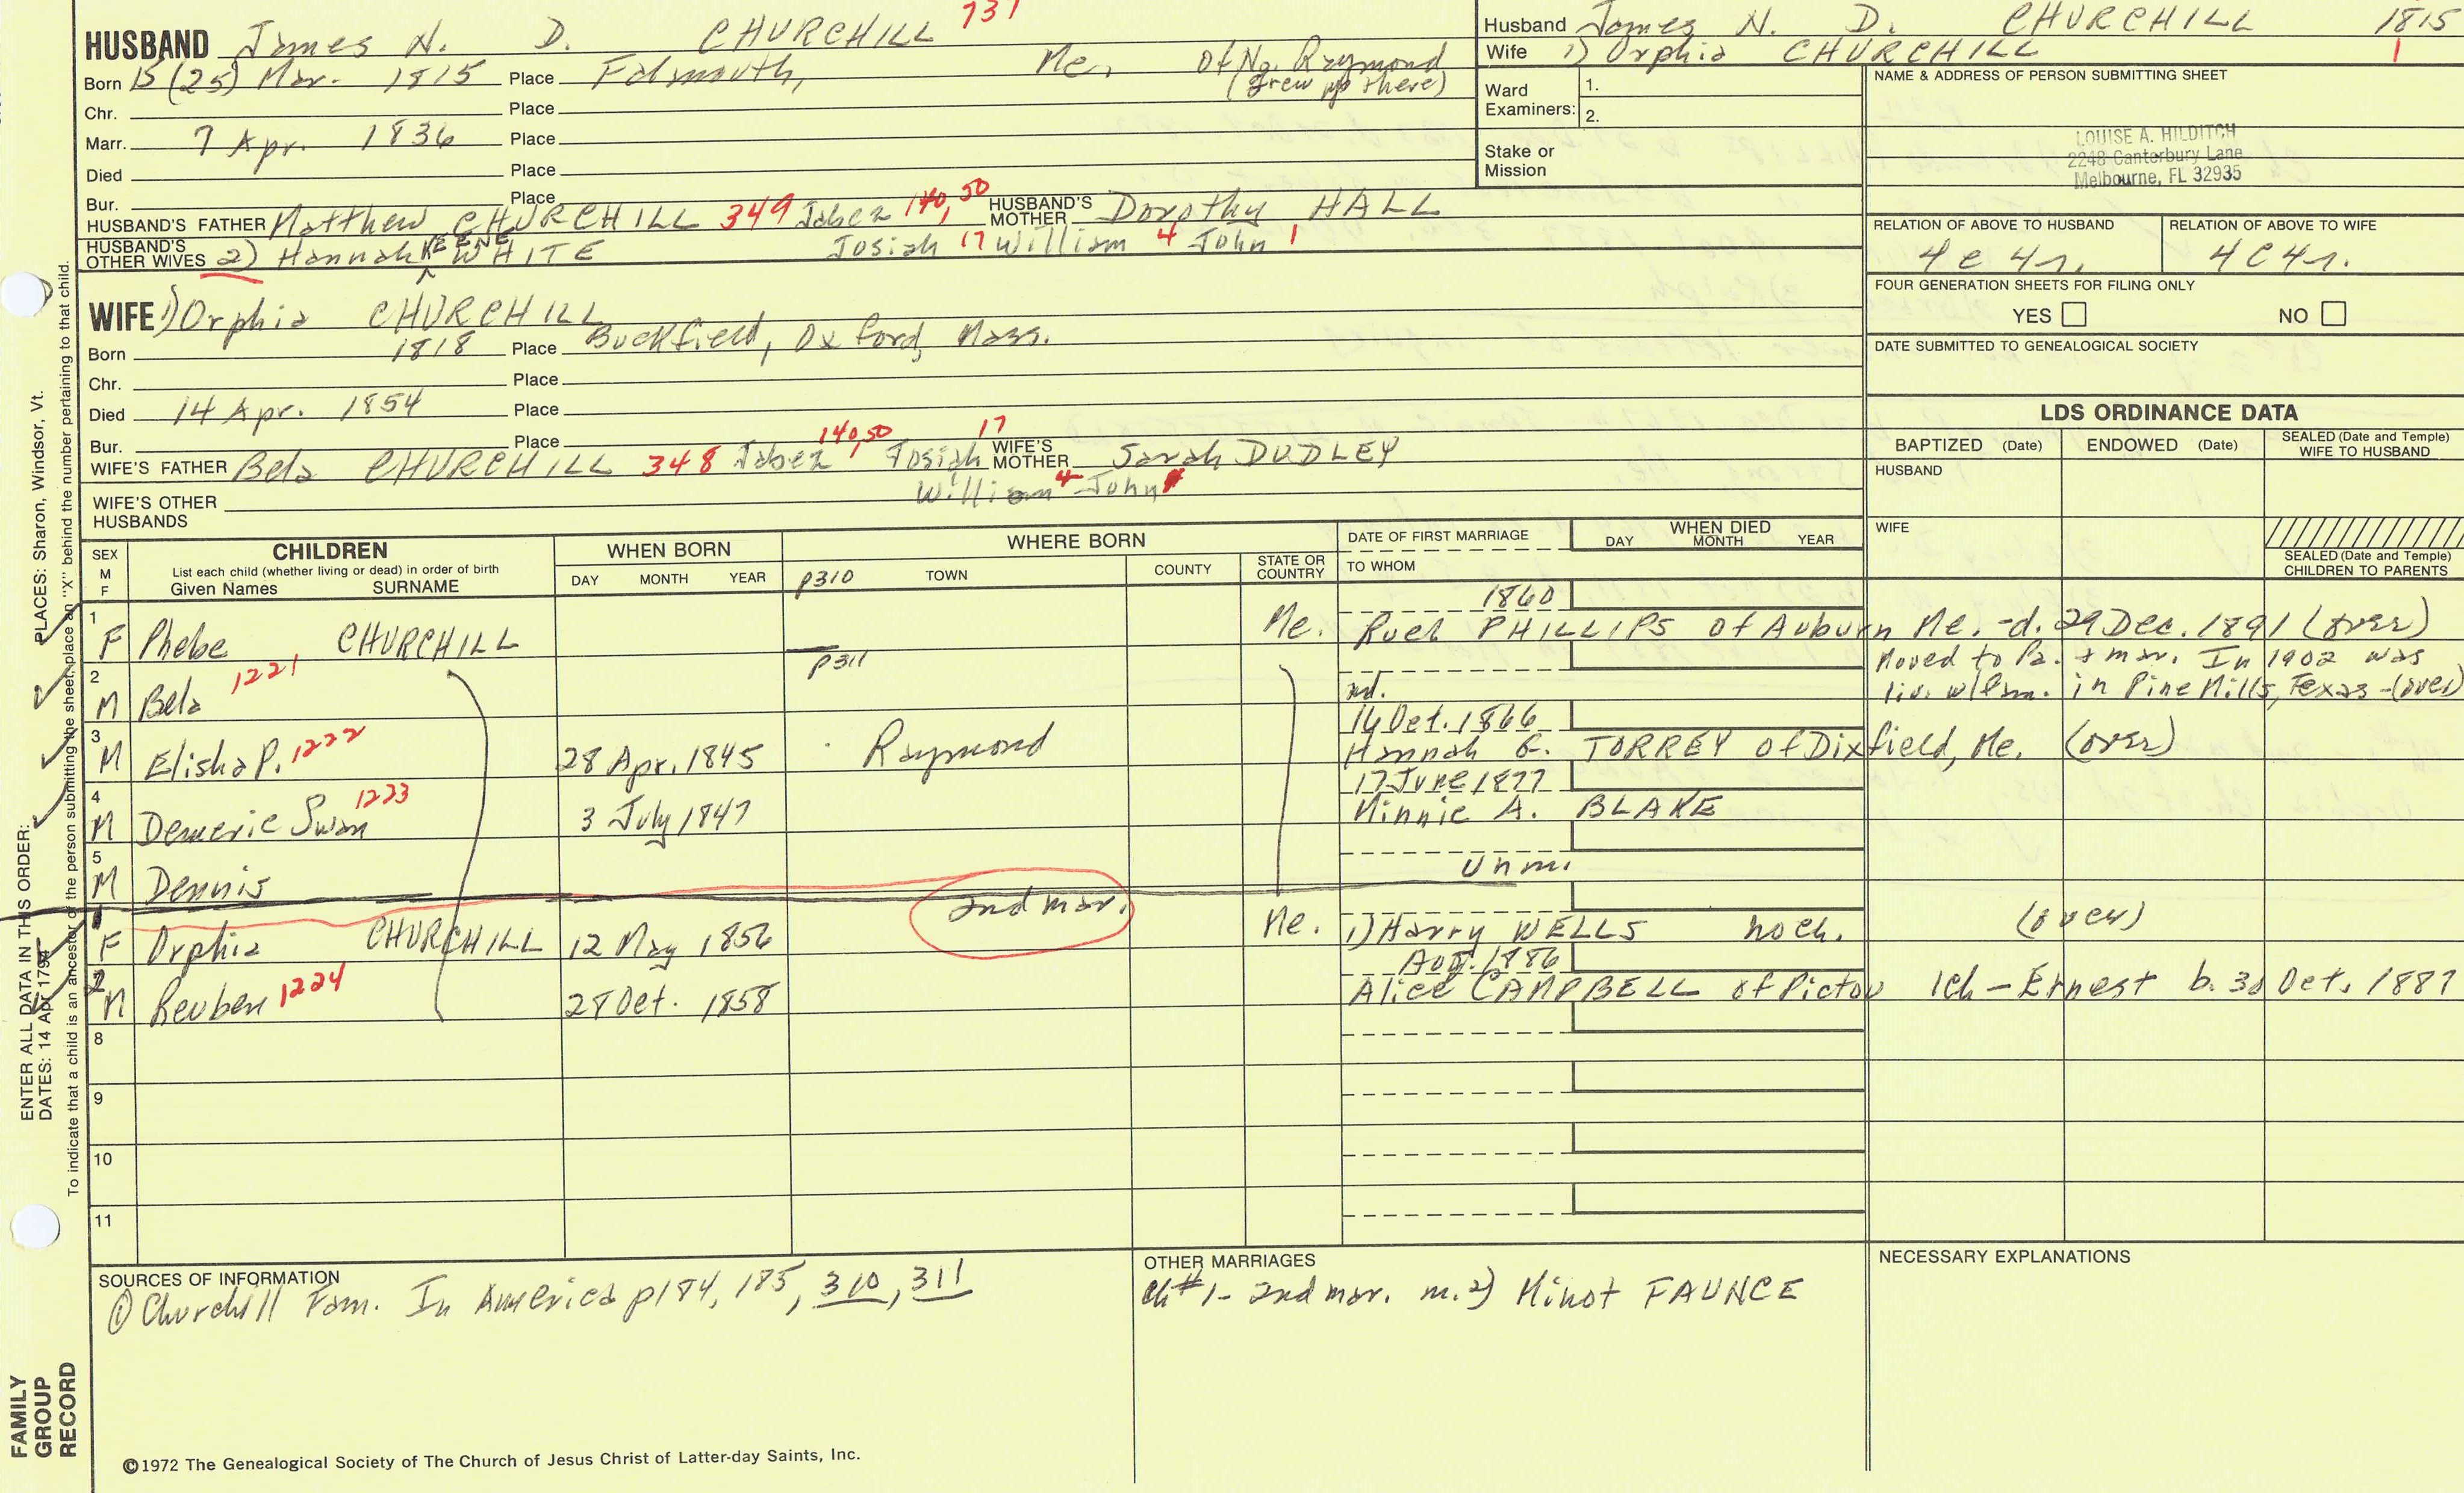 HUSBAND James N. D. CHURCHILL 731
Born 15 (25) Mar. 1815 Place Falmouth, Me. of No. Raymond
(grew up there)
Chr. Place
Marr. 7 Apr. 1836 Place
Died Place
Bur. Place
HUSBAND'S FATHER Matthew CHURCHILL 349 Jabez 140, 50 HUSBAND'S MOTHER Dorothy HALL
HUSBAND'S OTHER WIVES 2) Hannah KEENE WHITE Josiah 17 William 4 John 1
WIFE 1) Orphia CHURCHILL
Born 1818 Place Buckfield, Oxford, Mass.
Chr. Place
Died 14 Apr. 1854 Place
Bur. Place
WIFE'S FATHER Bela CHURCHILL 348 Jabez 140,50 Josiah 17 WIFE'S MOTHER Sarah DUDLEY
William 4 John
WIFE'S OTHER HUSBANDS
Husband James N. D. CHURCHILL 1815
Wife 1) Orphia CHURCHILL 1
Ward Examiners: 1.
2.
Stake or Mission
NAME & ADDRESS OF PERSON SUBMITTING SHEET
LOUISE A. HILDITCH
2248 Canterbury Lane
Melbourne, FL 32935
RELATION OF ABOVE TO HUSBAND RELATION OF ABOVE TO WIFE
4c 4r. 4C4r.
FOUR GENERATION SHEETS FOR FILING ONLY
YES NO
DATE SUBMITTED TO GENEALOGICAL SOCIETY
LDS ORDINANCE DATA
BAPTIZED (Date) ENDOWED (Date) SEALED (Date and Temple) WIFE TO HUSBAND
HUSBAND
WIFE
SEALED (Date and Temple) CHILDREN TO PARENTS
SEX M F
CHILDREN
List each child (whether living or dead) in order of birth
Given Names SURNAME
WHEN BORN
DAY MONTH YEAR
WHERE BORN
p310 TOWN COUNTY STATE OR COUNTRY
DATE OF FIRST MARRIAGE
TO WHOM
WHEN DIED
DAY MONTH YEAR
1 F Phebe CHURCHILL Me. 1860 Ruel PHILLIPS of Auburn Me. -d. 29 Dec. 1891 (over)
p311
2 M Bela 1221 md. Moved to Pa. + mar. In 1902 was
liv. w/fam. in Pine Mills, Texas - (over)
3 M Elisha P. 1222 28 Apr. 1845 Raymond 16 Oct. 1866 Hannah E. TORREY of Dixfield, Me. (over)
4 M Demeric Swan 1223 3 July 1847 17 June 1877 Minnie A. BLAKE
5 M Dennis Unm.
2nd mar.
1 F Orphia CHURCHILL 12 May 1856 Me. 1) Harry WELLS no ch. (over)
2 M Reuben 1224 28 Oct. 1858 Aug. 1886 Alice CAMPBELL of Pictou 1ch - Ernest b. 30 Oct. 1887
8
9
10
11
SOURCES OF INFORMATION
① Churchill Fam. In America p184, 185, 310, 311
OTHER MARRIAGES
ch #1 - 2nd mar. m. 2) Minot FAUNCE
NECESSARY EXPLANATIONS
©1972 The Genealogical Society of The Church of Jesus Christ of Latter-day Saints, Inc.
FAMILY GROUP RECORD
ENTER ALL DATA IN THIS ORDER:
PLACES: Sharon, Windsor, Vt.
DATES: 14 Apr 1794
To indicate that a child is an ancestor of the person submitting the sheet, place an "X" behind the number pertaining to that child.